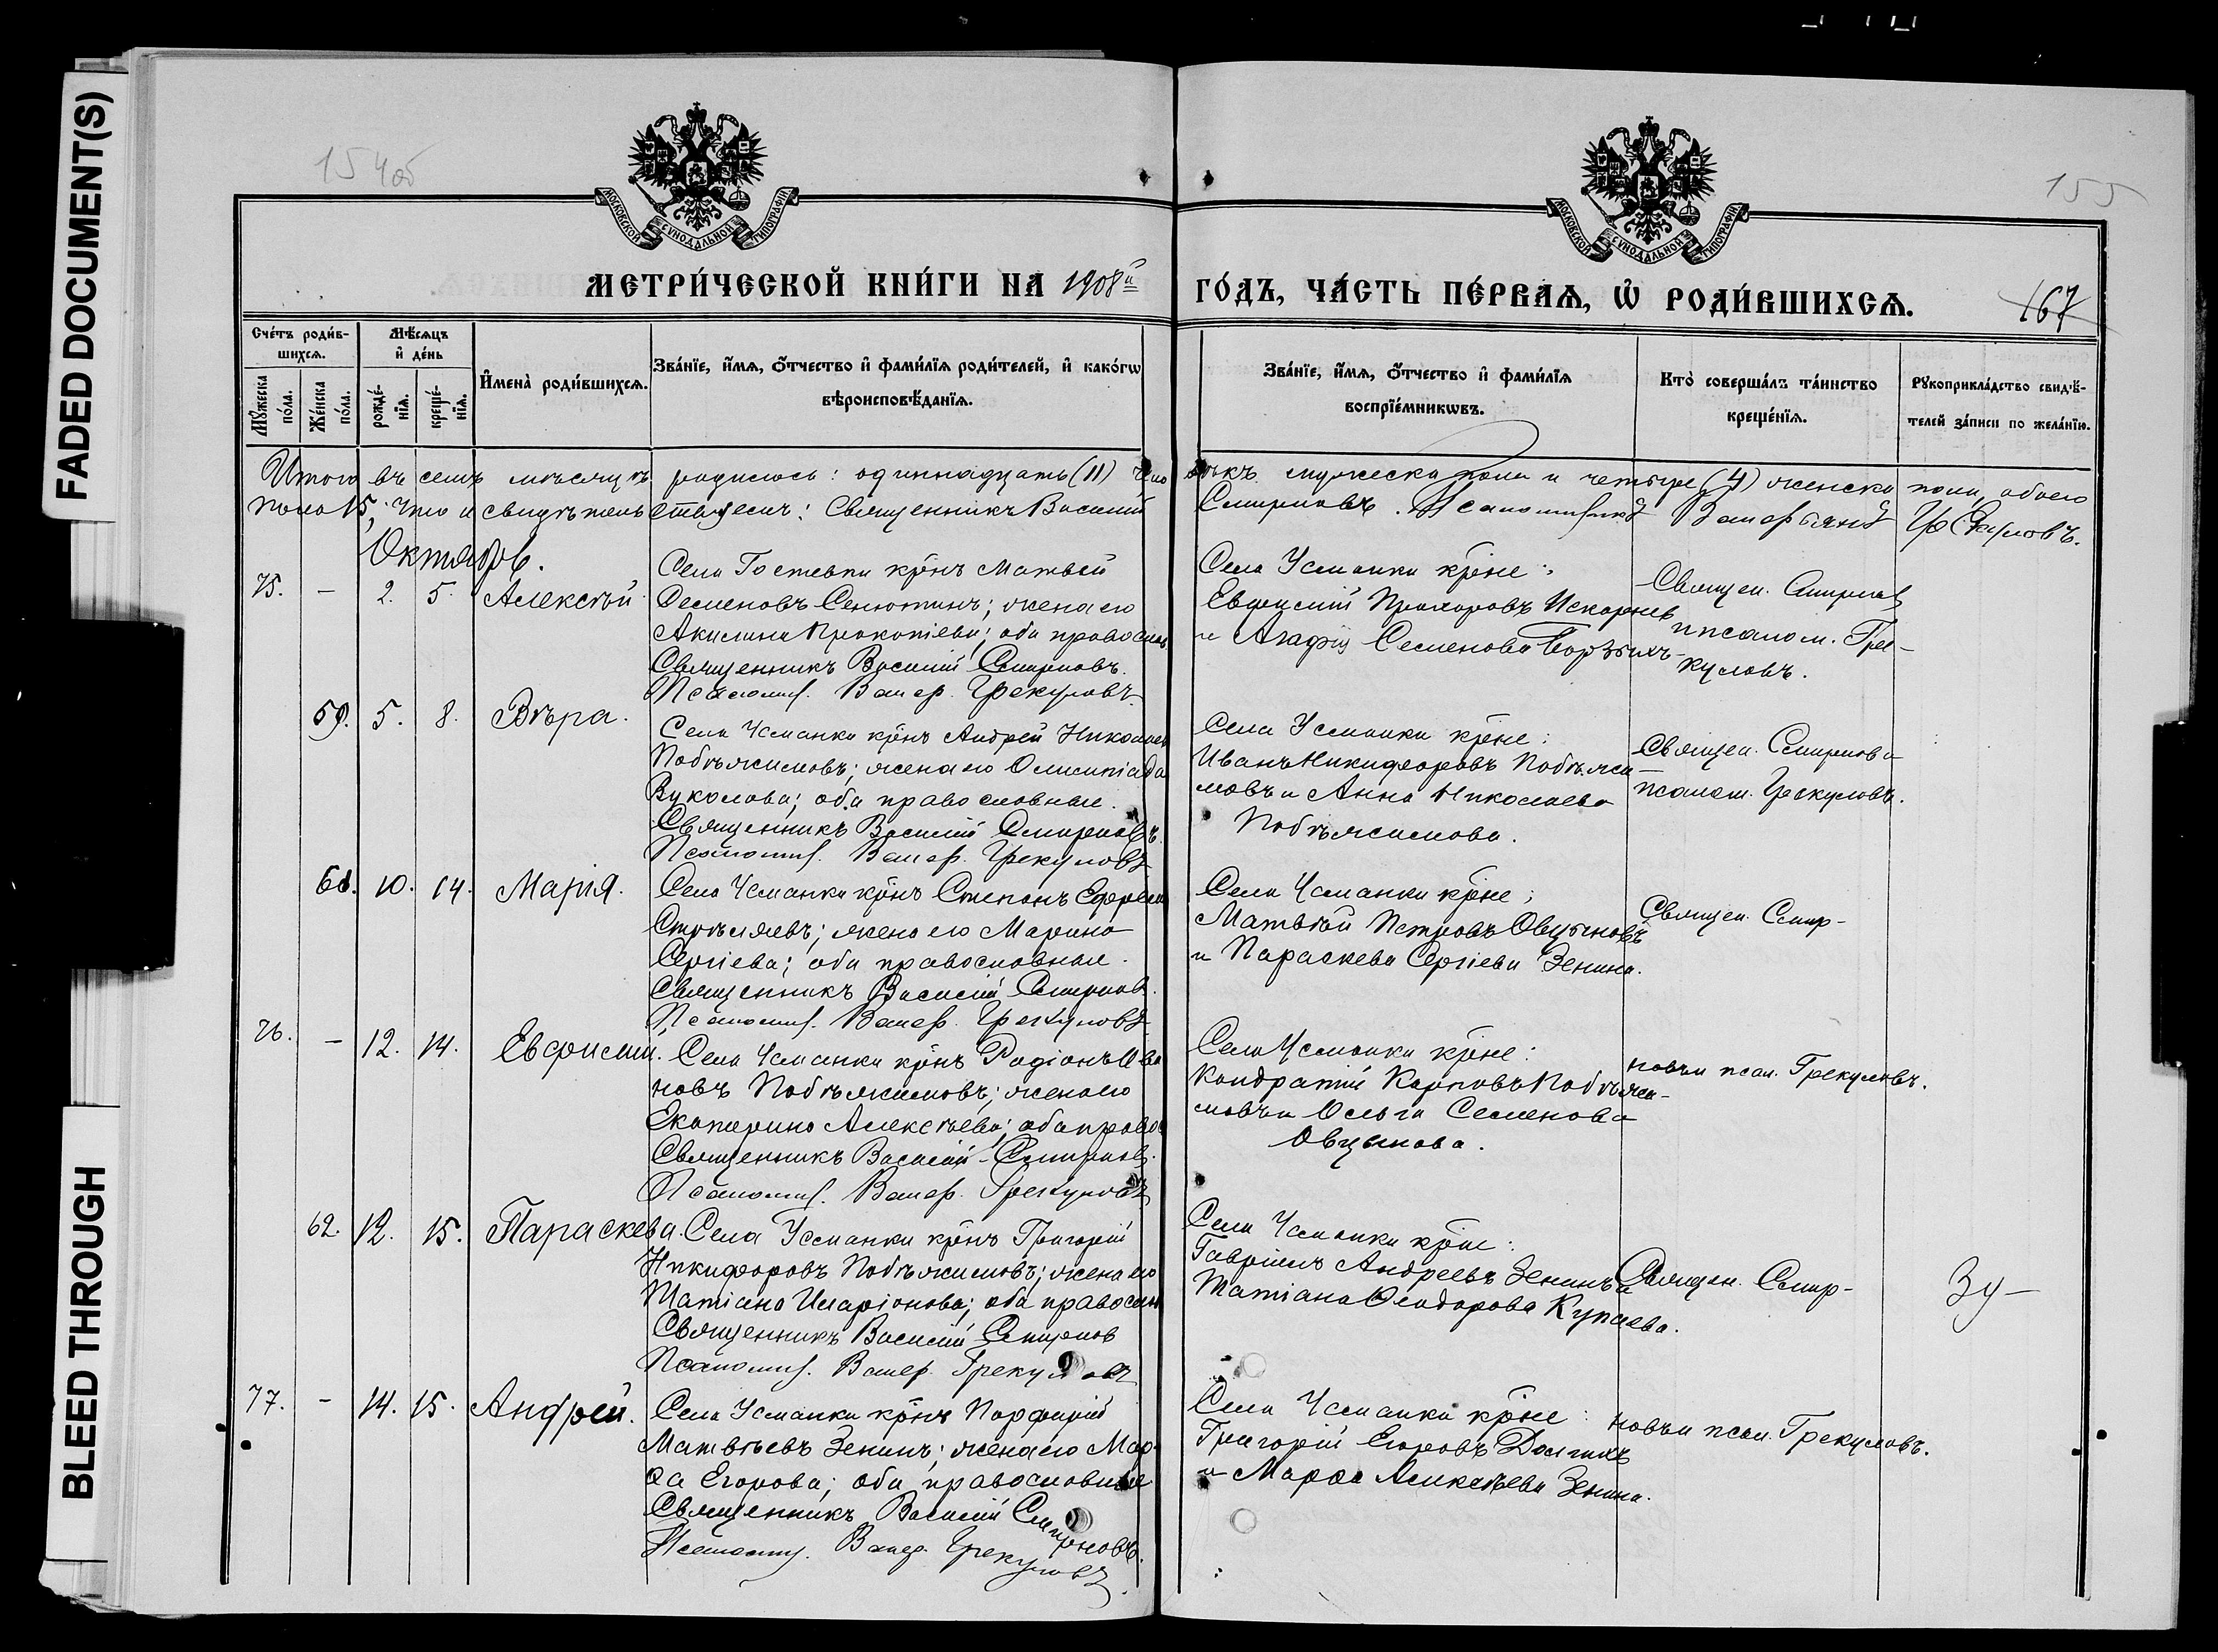 FADED DOCUMENT(S)
BLEED THROUGH
154об
155
167
МОСКОВСКОЙ СѴНОДАЛЬНОЙ ТИПОГРАФІИ
МОСКОВСКОЙ СѴНОДАЛЬНОЙ ТИПОГРАФІИ
МЕТРИ́ЧЕСКОЙ КНИ́ГИ НА 1908й
ГО́ДЪ, ЧА́СТЬ ПЕ́РВАѦ, Ѡ РОДИ́ВШИХСѦ.
Сче́тъ роди́в-
шихсѧ.
Мꙋ́жеска
по́ла.
Же́нска
по́ла.
Мѣ́сѧцъ
и де́нь
рожде́-
нїѧ.
креще́-
нїѧ.
Имена̀ роди́вшихсѧ.
Зва́нїе, и́мѧ, о́тчество и фами́лїѧ роди́телей, и како́гѡ
вѣроисповѣ́данїѧ.
Зва́нїе, и́мѧ, о́тчество и фами́лїѧ
воспрїе́мникѡвъ.
Кто̀ соверша́лъ та́инство
креще́нїѧ.
Рꙋкоприкла́дство свидѣ́-
телей за́писи по жела́нїю.
Итого въ семъ мѣсяцѣ родилось: одиннадцать (11) человѣкъ мужеска пола и четыре (4) женска пола, обоего
пола 15; что и свидѣтельствуемъ: Священникъ Василій Смирновъ. Псаломщикъ Валеріанъ Грекуловъ.
Октябрь.
75. – 2. 5. Алексѣй
Села Гостевки крнъ Матвѣй
Семеновъ Сенютинъ; жена его
Акилина Прокопіева; оба православ.
Священникъ Василій Смирновъ.
Псаломщ. Валер. Грекуловъ.
Села Усманки крне:
Евфимій Прохоровъ
и Агафія Семенова
Священ. Смирновъ
и псалом. Гре-
куловъ.
59. 5. 8. Вѣра.
Села Усманки крнъ Андрей Николаев
Побѣжимовъ; жена его Олимпіада
Вуколова; оба православные.
Священникъ Василій Смирновъ.
Псаломщ. Валер. Грекуловъ
Села Усманки крне:
Иванъ Никифоровъ Побѣжи-
мовъ и Анна Николаева
Побѣжимова.
Священ. Смирновъ и
псалом. Грекуловъ.
61. 10. 14. Марія.
Села Усманки крнъ Степанъ Ефремов
Стрѣляевъ; жена его Марина
Сергіева; оба православные.
Священникъ Василій Смирнов.
Псаломщ. Валер. Грекуловъ
Села Усманки крне;
Матвѣй Петровъ Овцыновъ
и Параскева Сергіева Зенина.
Священ. Смир-
76. – 12. 14. Евфимій.
Села Усманки крнъ Родіонъ Ива
новъ Побѣжимовъ; жена его
Екатерина Алексѣева; оба правос
Священникъ Василій Смирновъ.
Псаломщ. Валер. Грекуловъ
Села Усманки крне:
Кондратій Карповъ Побѣжи-
мовъ и Ольга Семенова
Овцынова.
новъ и псал. Грекуловъ.
62. 12. 15. Параскева.
Села Усманки крнъ Григорій
Никифоровъ Побѣжимовъ; жена его
Татіана Иларіонова; оба православ
Священникъ Василій Смирнов
Псаломщ. Валер. Грекуловъ
Села Усманки крне:
Гавріилъ Андреевъ Зенинъ и
Татіана Ѳеодорова Купаева.
Священ. Смир-
Зу-
77. – 14. 15. Андрей.
Села Усманки крнъ Порфирій
Матвѣевъ Зенинъ; жена его Мар-
ѳа Егорова; оба православные
Священникъ Василій Смирновъ.
Псаломщ. Валер. Грекуловъ.
Села Усманки крне:
Григорій Егоровъ Долгихъ
и Марѳа Алексѣева Зенина.
новъ и псал. Грекуловъ.